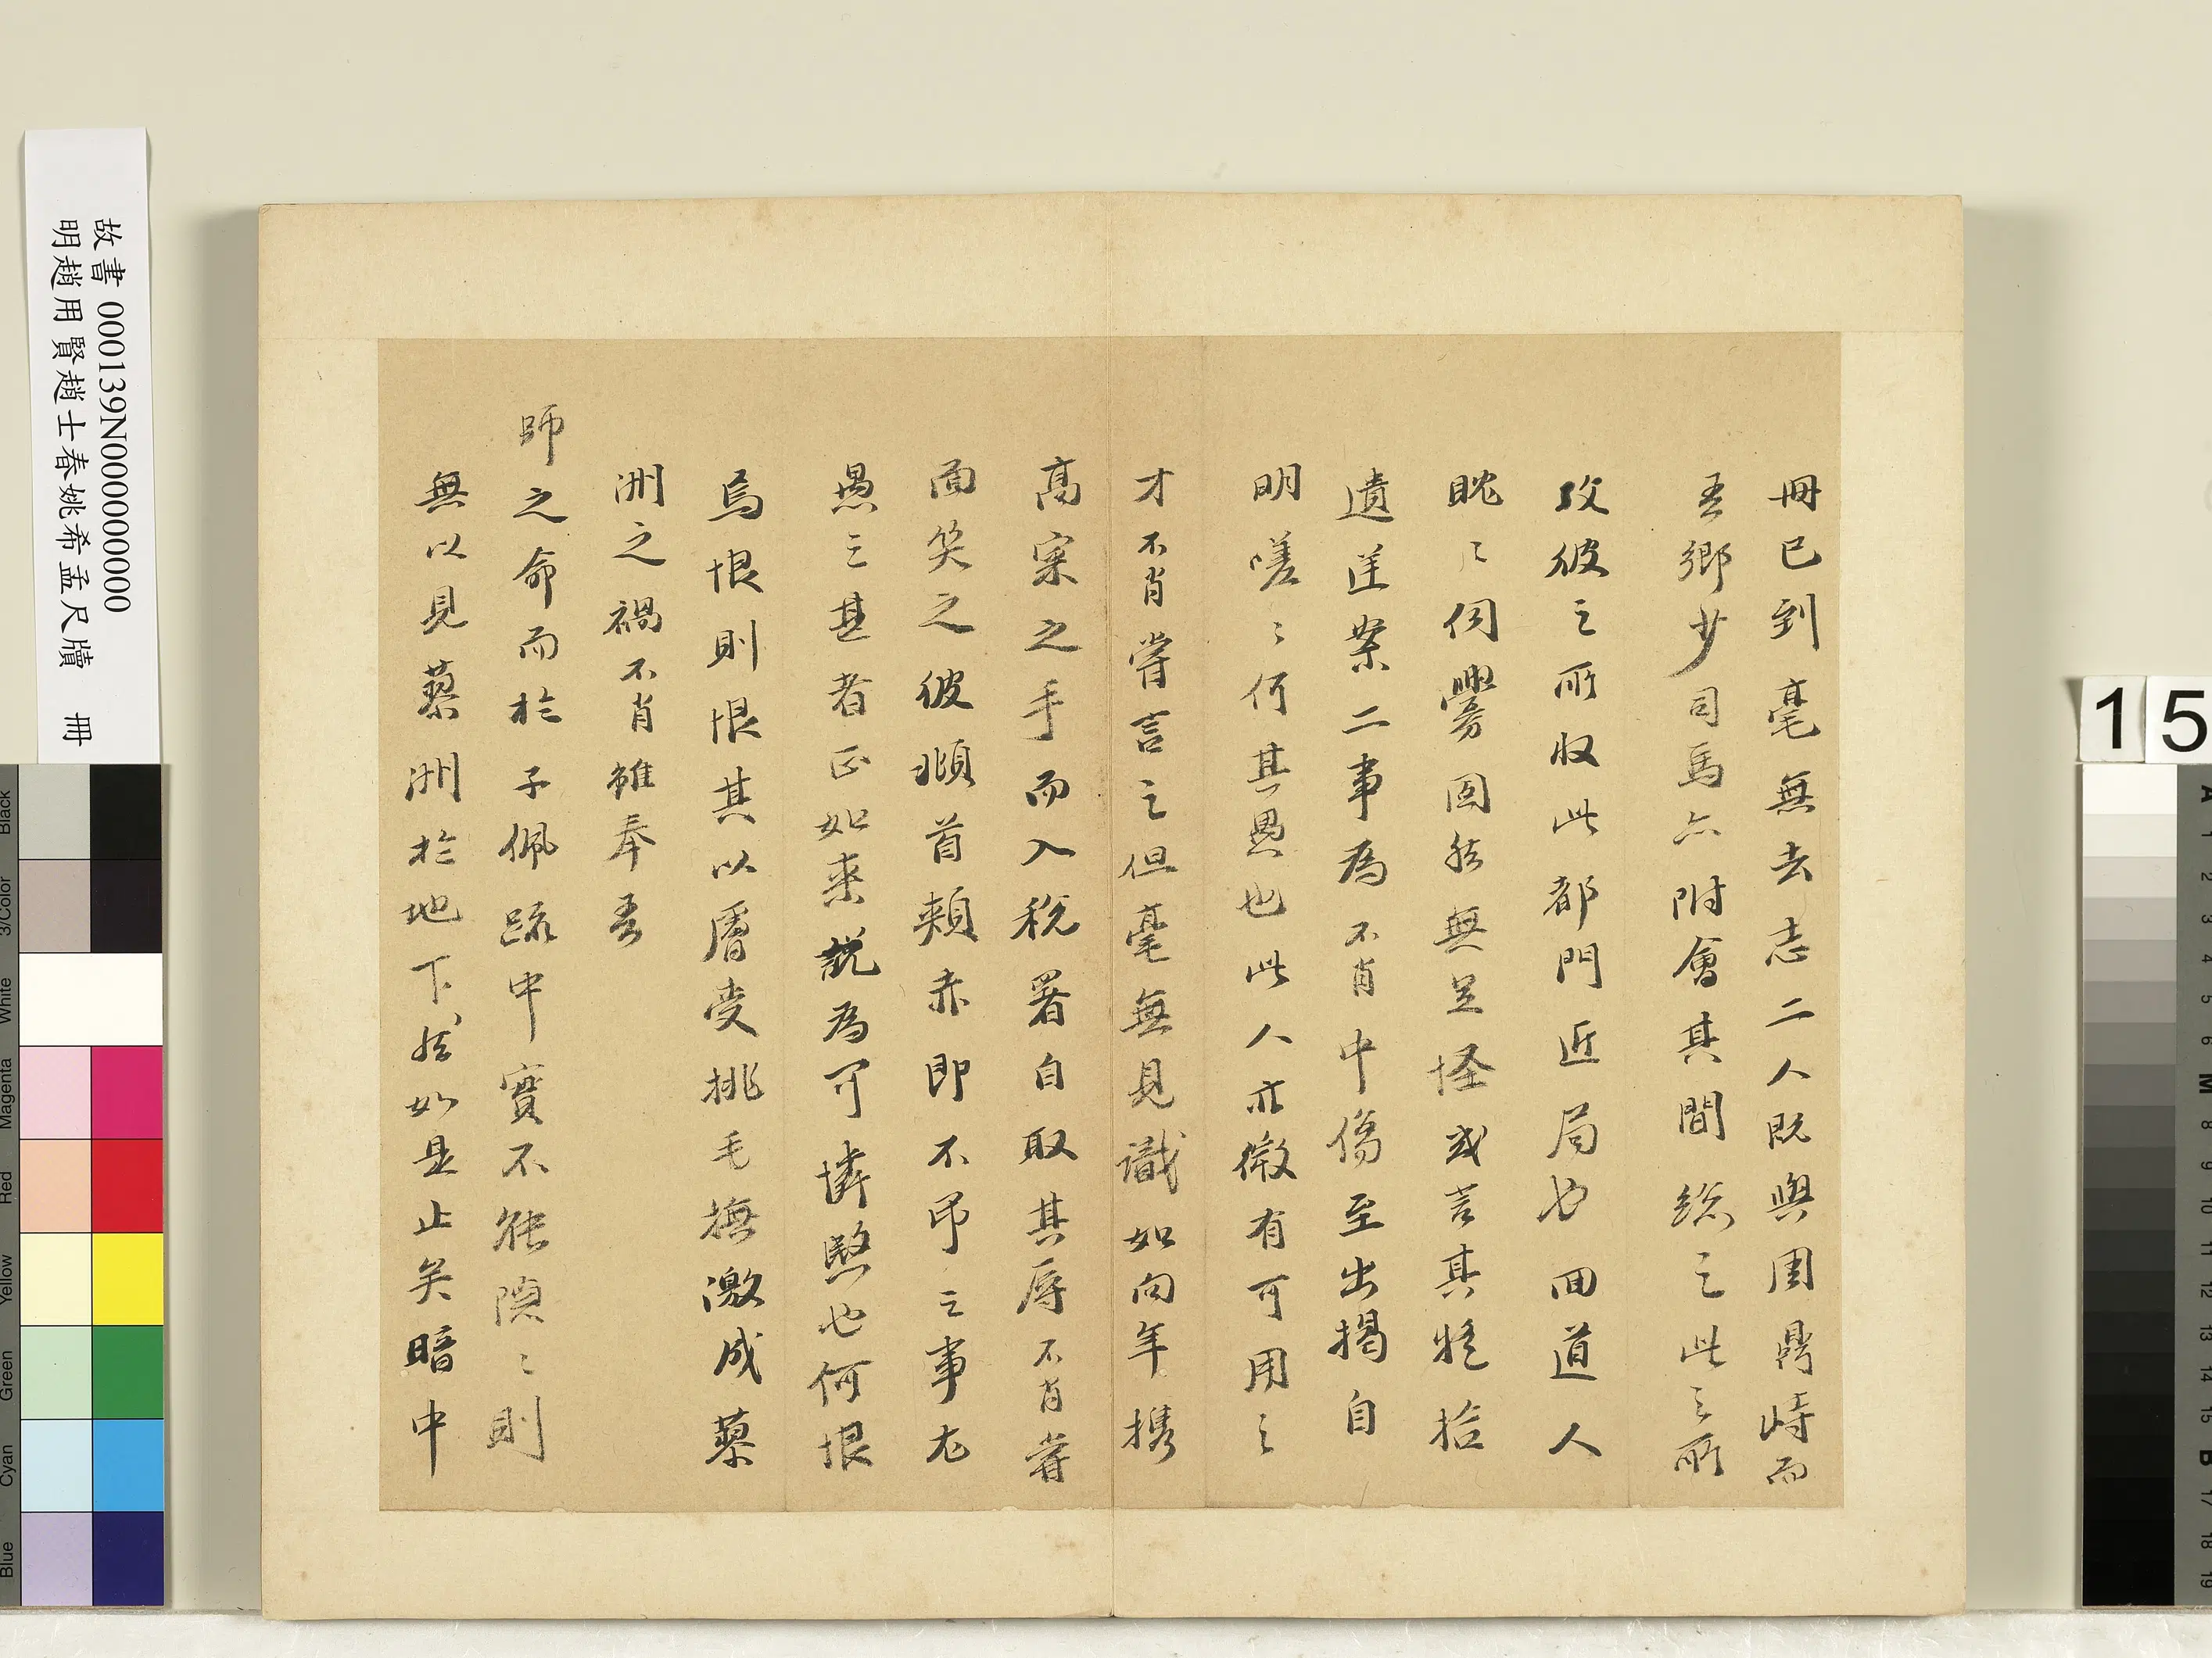 冊已到毫無去志二人既與周鼎峙而
吾鄉少司馬亦附會其間總之此之所
攻彼之所收此都門近局也回道人
眈〻伺釁固然無足怪或言其將拾
遺遥案二事為不肖中傷至出揭自
明嗟〻何其愚也此人亦微有可用之
才不肖嘗言之但毫無見識如向年攜
高寀之手而入稅署自取其辱不肖嘗
面笑之彼頫首頰赤即不吊之事尤
愚之甚者正如来說為可憐愍也何恨
焉恨則恨其以膚受挑毛撫激成藜
洲之禍不肖雖奉吾
師之命而於子佩疏中實不能隱〻則
無以見藜洲於地下然如是止矣暗中
故書 000139N000000000
明趙用賢趙士春姚希孟尺牘 冊
15
Black
3/Color
White
Magenta
Red
Yellow
Green
Cyan
Blue
A
1
2
3
4
5
6
M
8
9
10
11
12
13
14
15
B
17
18
19